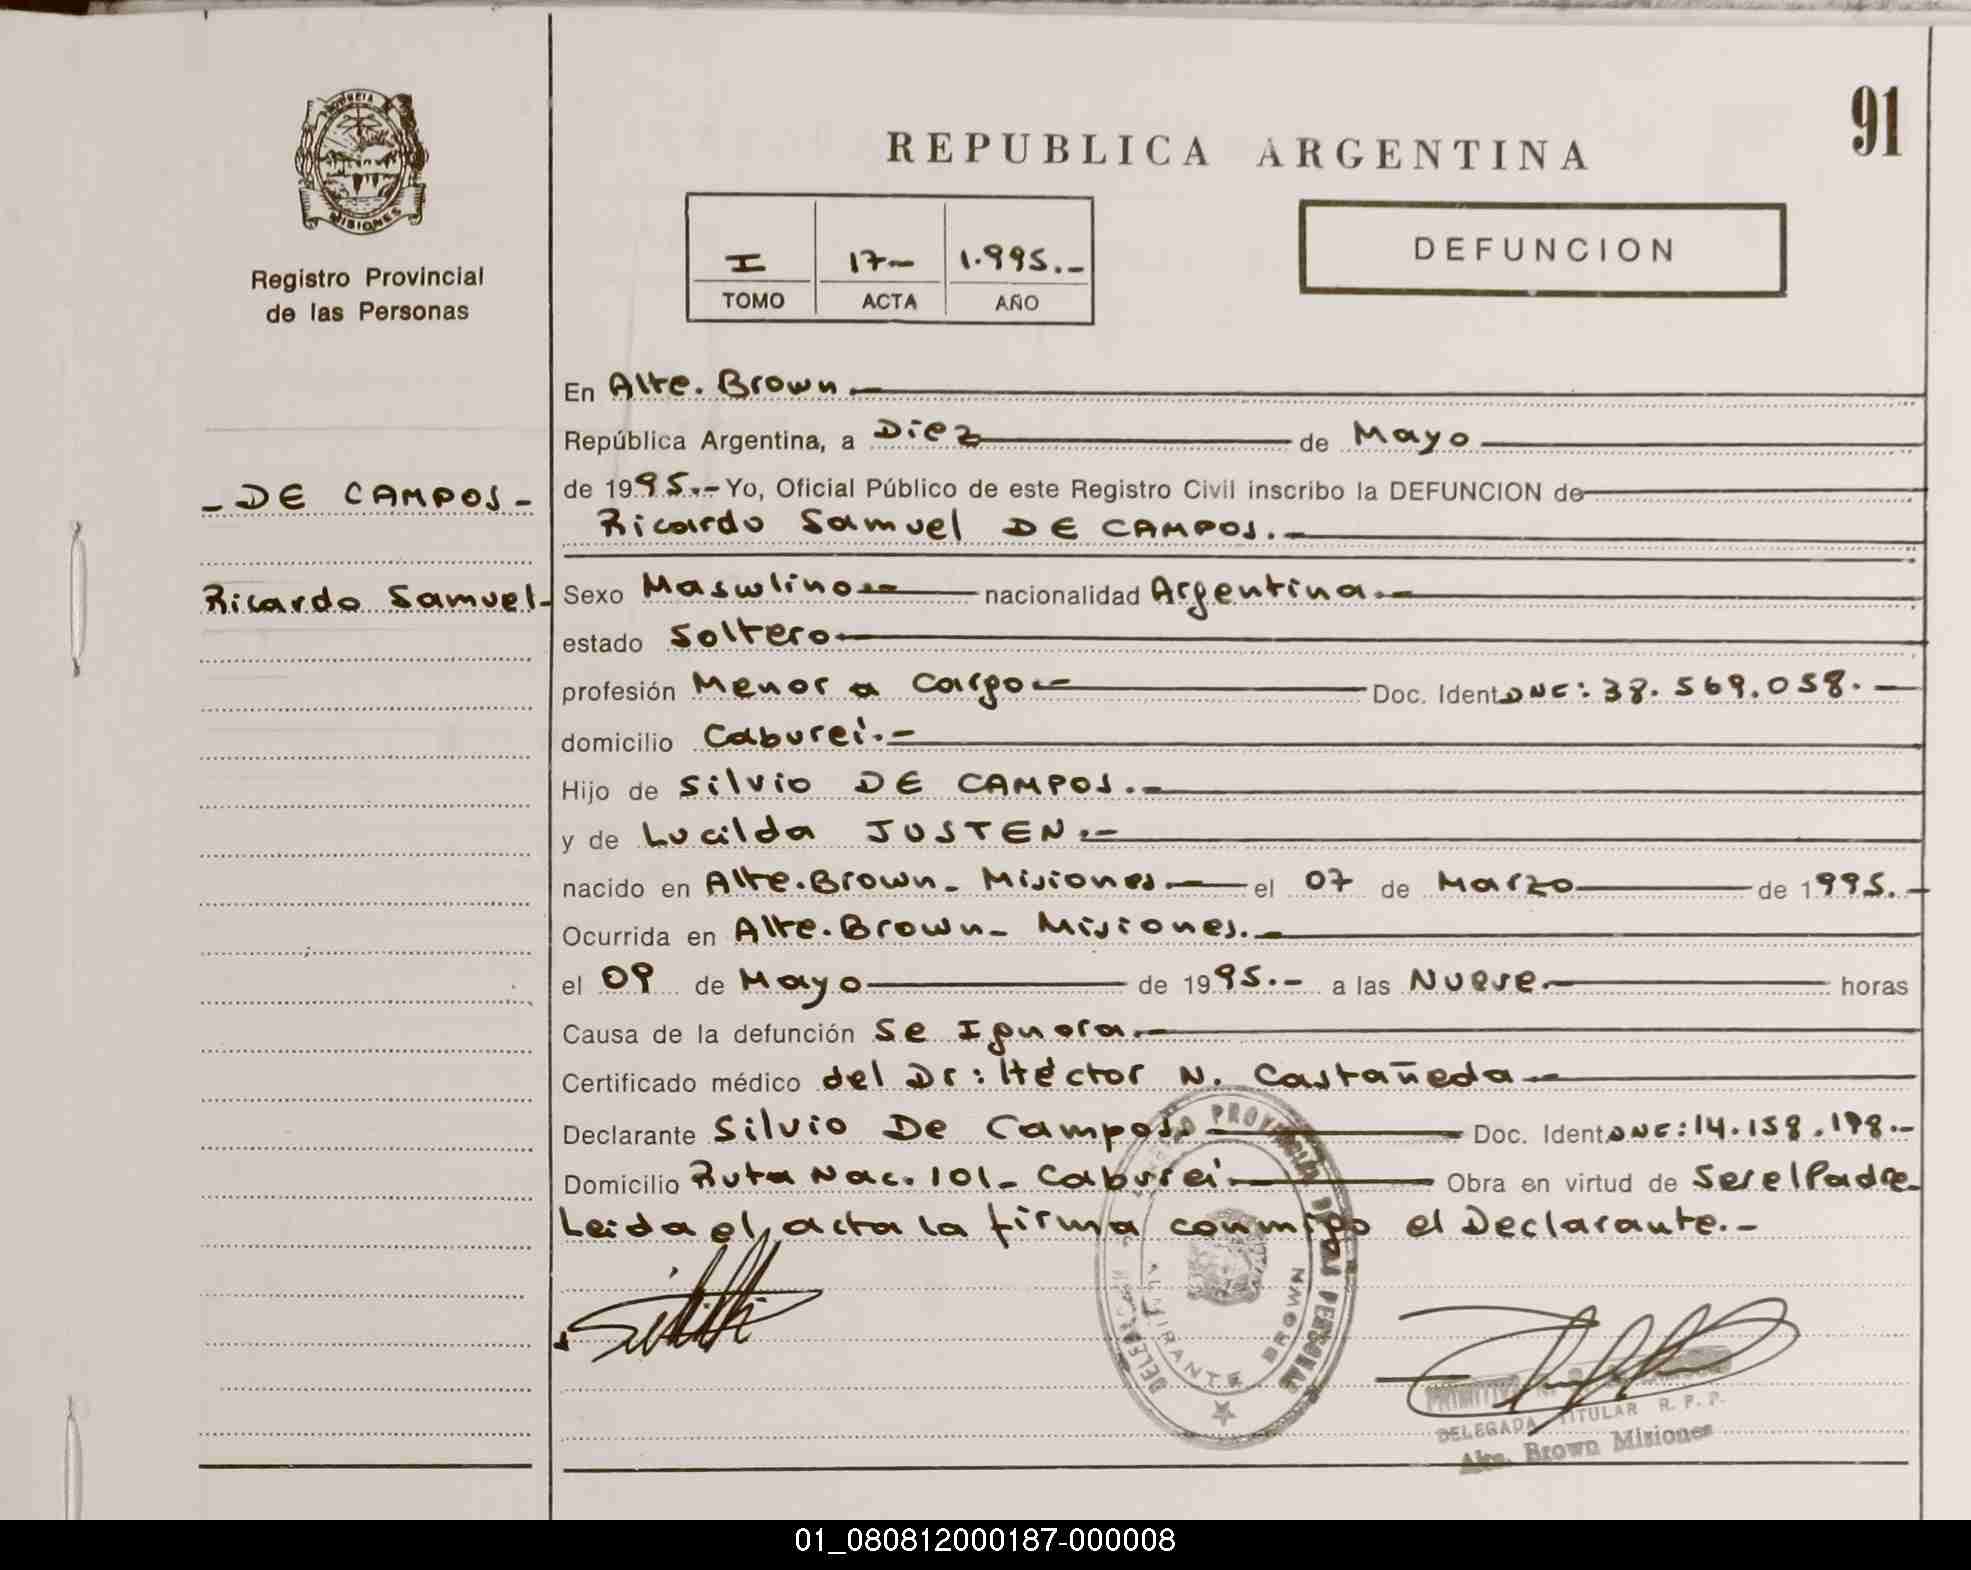 91
PROVINCIA DE
MISIONES
Registro Provincial
de las Personas
REPUBLICA ARGENTINA
I 17- 1.995.-
TOMO ACTA AÑO
DEFUNCION
- DE CAMPOS -
Ricardo Samuel-
En Alte. Brown.
República Argentina, a Diez de Mayo
de 1995.- Yo, Oficial Público de este Registro Civil inscribo la DEFUNCION de
Ricardo Samuel DE CAMPOS.-
Sexo Masculino nacionalidad Argentina.-
estado Soltero
profesión Menor a Cargo.- Doc. Ident DNE: 38.569.058.-
domicilio Caburei.-
Hijo de Silvio DE CAMPOS.-
y de Lucilda JUSTEN.-
nacido en Alte. Brown- Misiones.- el 07 de Marzo de 1995.-
Ocurrida en Alte. Brown- Misiones.-
el 09 de Mayo de 1995.- a las Nueve.- horas
Causa de la defunción Se Ignora.-
Certificado médico del Dr: Héctor N. Castañeda.-
Declarante Silvio De Campos.- Doc. Ident DNE: 14.158.198.-
Domicilio Ruta Nac. 101- Caburei.- Obra en virtud de Ser el Padre-
Leida el acta la firma conmigo el Declarante.-
ALMIRANTE BROWN
DELEGADA TITULAR R. P. P.
Alte. Brown Misiones
01_080812000187-000008